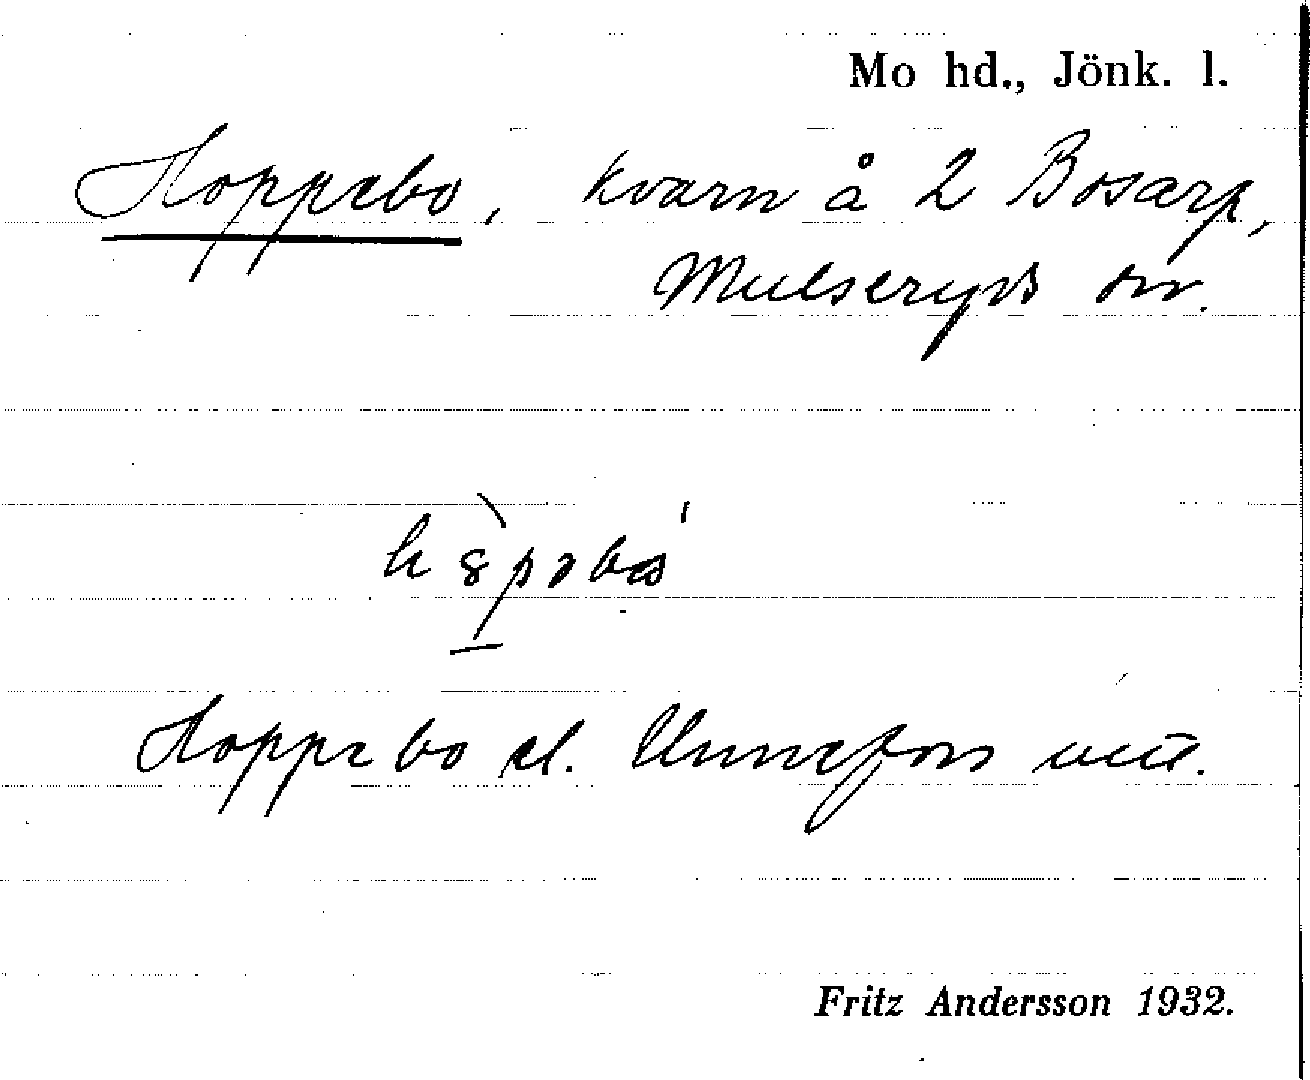 Mo hd., Jönk. l.
Hoppebo, kvarn å 2 Bosarp,
Mulseryds sn.
Hoppebo el. Unnefors
Fritz Andersson 1932.